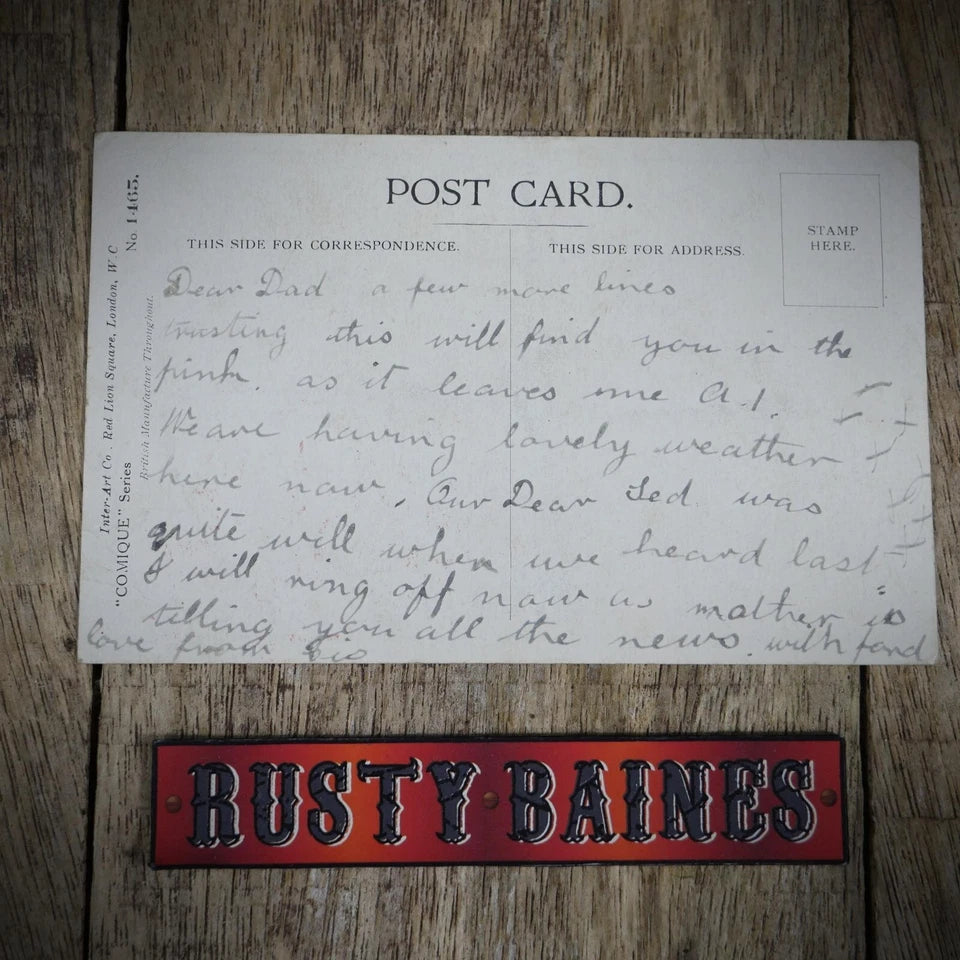 POST CARD.
THIS SIDE FOR CORRESPONDENCE.
THIS SIDE FOR ADDRESS.
STAMP
HERE.
Inter-Art Co. Red Lion Square, London, W.C
"COMIQUE" Series
No. 1465.
British Manufacture Throughout.
Dear Dad a few more lines
trusting this will find you in the
pink. as it leaves me A.1.
We are having lovely weather
here now. Our Dear Ted was
quite will when we heard last
I will ring off now as mother is
tilling you all the news. with fond
love from
RUSTY BAINES